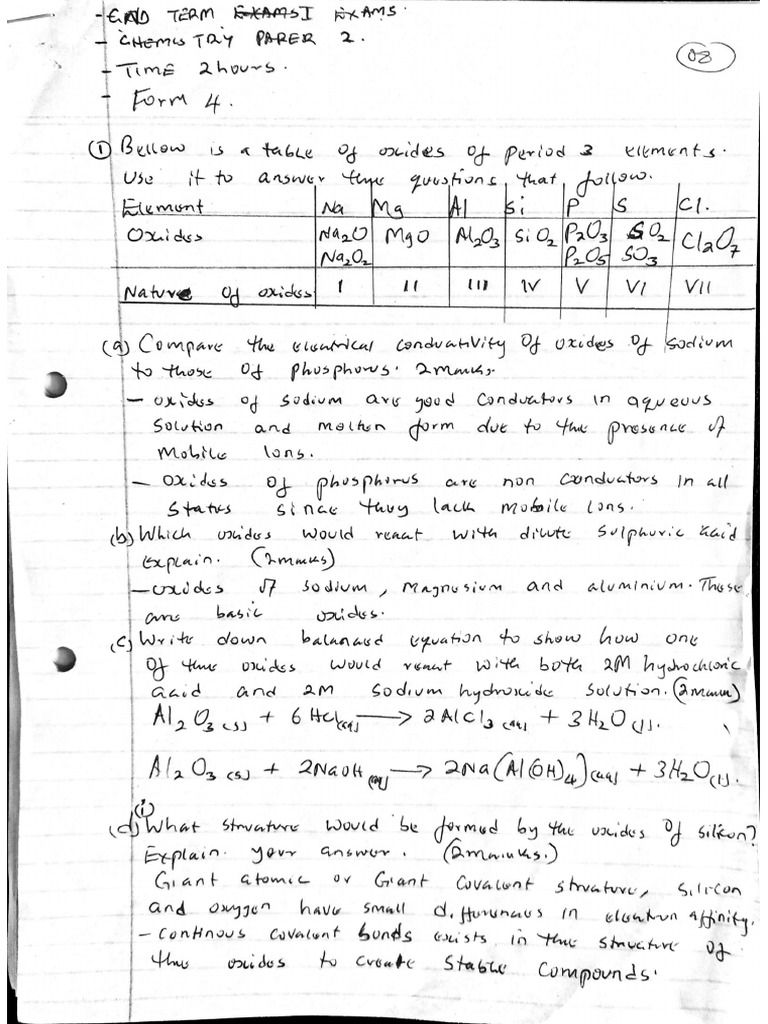 - END TERM EXAMS I EXAMS.
- CHEMISTRY PAPER 2.
08
- TIME 2 hours.
- Form 4.
① Bellow is a table of oxides of period 3 elements.
Use it to answer the questions that follow.
Element Na Mg Al Si P S Cl.
Oxides Na2O MgO Al2O3 SiO2 P2O3 SO2 Cl2O7
Na2O2 P2O5 SO3
Nature of oxides I II III IV V VI VII
(a) Compare the electrical conductivity of oxides of sodium
to those of phosphorus. 2marks.
- oxides of sodium are good conductors in aqueous
solution and molten form due to the presence of
mobile ions.
- oxides of phosphorus are non conductors in all
states since they lack mobile ions.
(b) Which oxides would react with dilute sulphuric acid
explain. (2marks)
- oxides of sodium, magnesium and aluminium. These
are basic oxides.
(c) Write down balanced equation to show how one
of the oxides would react with both 2M hydrochloric
acid and 2M sodium hydroxide solution. (2marks)
Al2O3(s) + 6HCl(aq) → 2AlCl3(aq) + 3H2O(l).
Al2O3(s) + 2NaOH(aq) → 2Na(Al(OH)4)(aq) + 3H2O(l).
(d) (i) What structure would be formed by the oxides of silicon?
Explain your answer. (2marks.)
Giant atomic or Giant covalent structure, silicon
and oxygen have small differences in electron affinity.
- continous covalent bonds exists in the structure of
the oxides to create stable compounds.